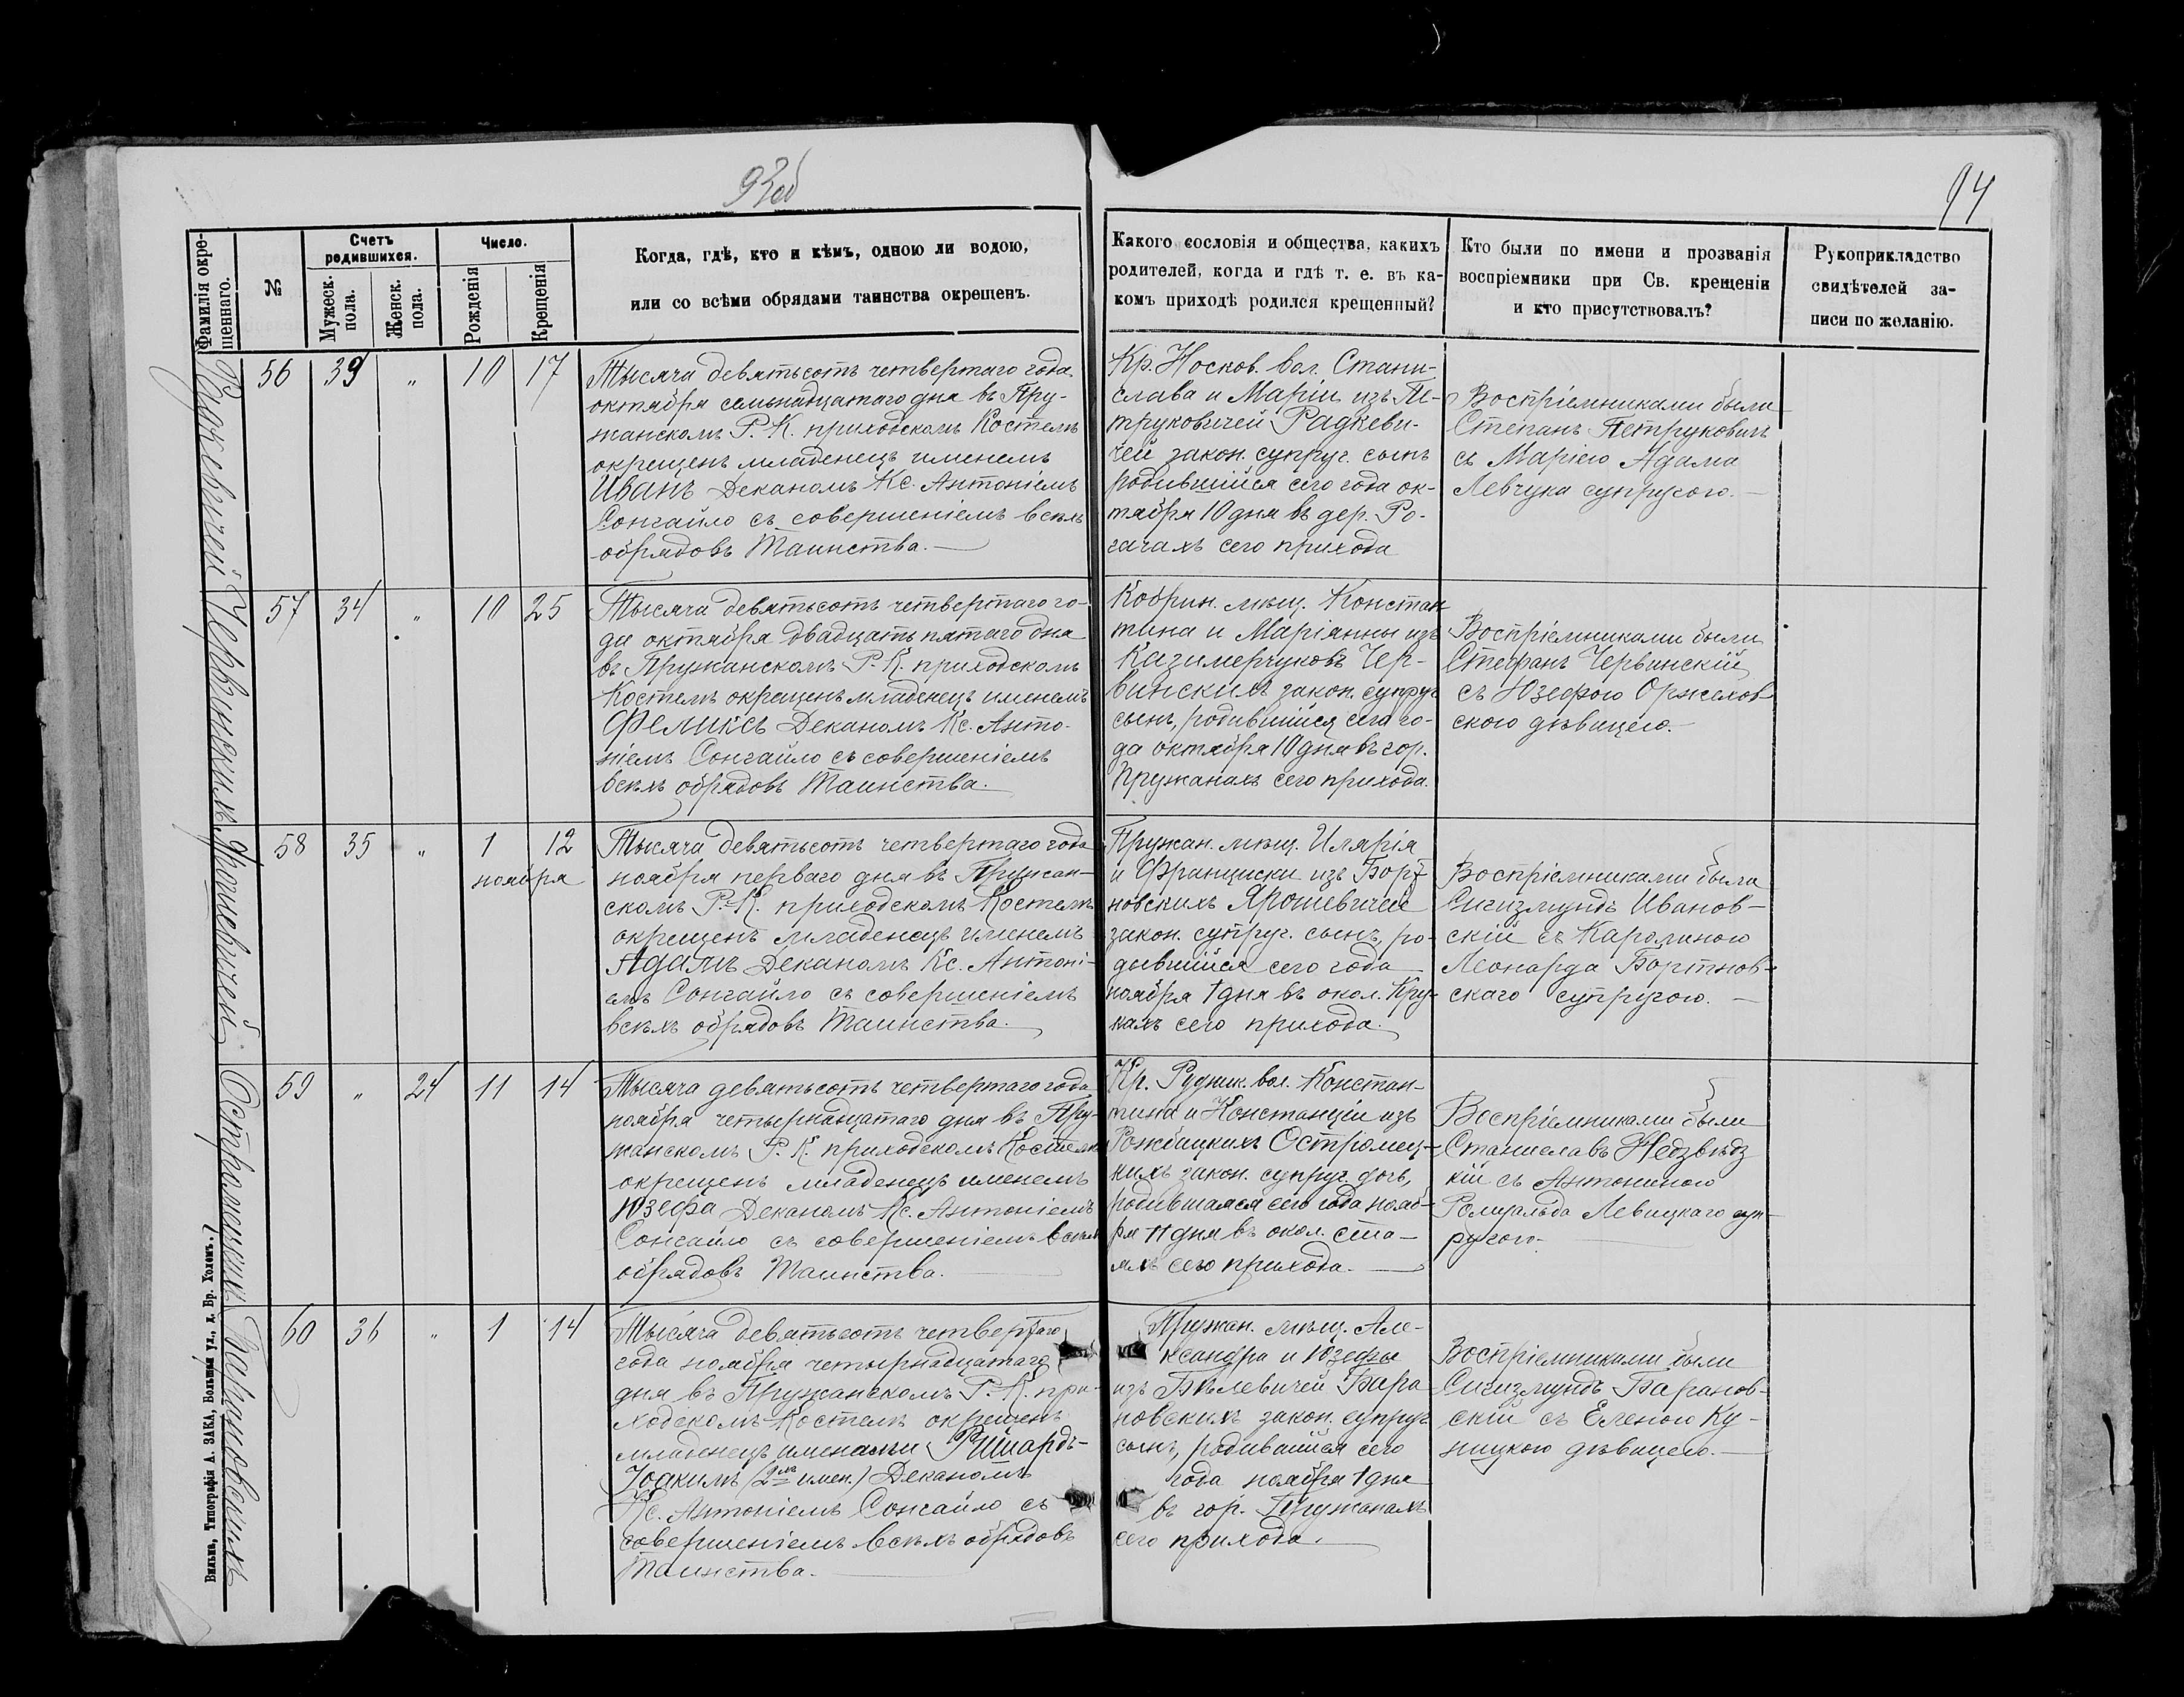 93об
94
Фамилія окре-
щеннаго.
№
Счетъ
родившихся.
Мужеск.
пола.
Женск.
пола.
Число.
Рожденія
Крещенія
Когда, гдѣ, кто и кѣмъ, одною ли водою,
или со всѣми обрядами таинства окрещенъ.
Какого сословія и общества, какихъ
родителей, когда и гдѣ т. е. въ ка-
комъ приходѣ родился крещенный?
Кто были по имени и прозванія
воспріемники при Св. крещеніи
и кто присутствовалъ?
Рукоприкладство
свидѣтелей за-
писи по желанію.
Радкевичей
56 39 „ 10 17
Тысяча девятьсотъ четвертаго года
октября семьнадцатаго дня въ Пру-
жанскомъ Р. К. приходскомъ Костелѣ
окрещенъ младенецъ именемъ
Иванъ Деканомъ Кс. Антоніемъ
Сонгайло съ совершеніемъ всѣхъ
обрядовъ Таинства.
Кр. Носков. вол. Стани-
слава и Маріи изъ Пе-
труковичей Радкеви-
чей закон. супруг. сынъ
родившійся сего года ок-
тября 10 дня въ дер. Ро-
гачахъ сего прихода
Воспріемниками были
Степанъ Петруковичъ
съ Маріею Адама
Левчука супругою.
Червинскихъ
57 34 „ 10 25
Тысяча девятьсотъ четвертаго го-
да октября двадцать пятаго дня
въ Пружанскомъ Р. К. приходскомъ
Костелѣ окрещенъ младенецъ именемъ
Феликсъ Деканомъ Кс. Анто-
ніемъ Сонгайло съ совершеніемъ
всѣхъ обрядовъ Таинства.
Кобрин. мѣщ. Констан
тина и Маріанны изъ
Казимерчуковъ Чер-
винскихъ закон. супруг
сынъ, родившійся сего го-
да октября 10 дня въ гор.
Пружанахъ сего прихода.
Воспріемниками были
Стефанъ Червинскій
съ Юзефою Оржехов
скою дѣвицею.
Ярошевичей
58 35 „ 1 12
ноября
Тысяча девятьсотъ четвертаго года
ноября перваго дня въ Пружан-
скомъ Р. К. приходскомъ Костелѣ
окрещенъ младенецъ именемъ
Адамъ Деканомъ Кс. Антоні-
емъ Сонгайло съ совершеніемъ
всѣхъ обрядовъ Таинства.
Пружан. мѣщ. Илярія
и Франциски изъ Борт
новскихъ Ярошевичей
закон. супруг. сынъ, ро-
дывшійся сего года
ноября 1 дня въ окол. Кру-
кахъ сего прихода.
Воспріемниками были
Сигизмундъ Иванов-
скій съ Каролиною
Леонарда Бортнов-
скаго супругою.
Остромецкихъ
59 „ 24 11 14
Тысяча девятьсотъ четвертаго года
ноября четырнадцатаго дня въ Пру-
жанскомъ Р. К. приходскомъ Костелѣ
окрещенъ младенецъ именемъ
Юзефа Деканомъ Кс. Антоніемъ
Сонгайло съ совершеніемъ всѣхъ
обрядовъ Таинства.
Кр. Рудник. вол. Констан-
тина и Констанціи изъ
Рожбицкихъ Остромец-
кихъ закон. супруг. дочь,
родившаяся сего года нояб-
ря 11 дня въ окол.
сего прихода.
Воспріемниками были
Станиславъ Недзвѣдз
кій съ Антониною
Ромуальда Левицкаго суп-
ругою.
Барановскихъ
60 36 „ 1 14
Тысяча девятьсотъ четвертаго
года ноября четырнадцатаго
дня въ Пружанскомъ Р. К. при-
ходскомъ Костелѣ окрещенъ
младенецъ именами Ришардъ-
Іоакимъ (2мя имен.) Деканомъ
Кс. Антоніемъ Сонгайло съ
совершеніемъ всѣхъ обрядовъ
Таинства.
Пружан. мѣщ. Але-
ксандра и Юзефы
изъ Бѣлевичей Бара
новскихъ закон. супруг
сынъ, родившійся сего
года ноября 1 дня
въ гор. Пружанахъ
сего прихода.
Воспріемниками были
Сигизмундъ Баранов-
скій съ Еленою Ку-
ницкою дѣвицею.
Вильно, Типографія А. ЗАКА, Большая ул., д. Бр. Холемъ.